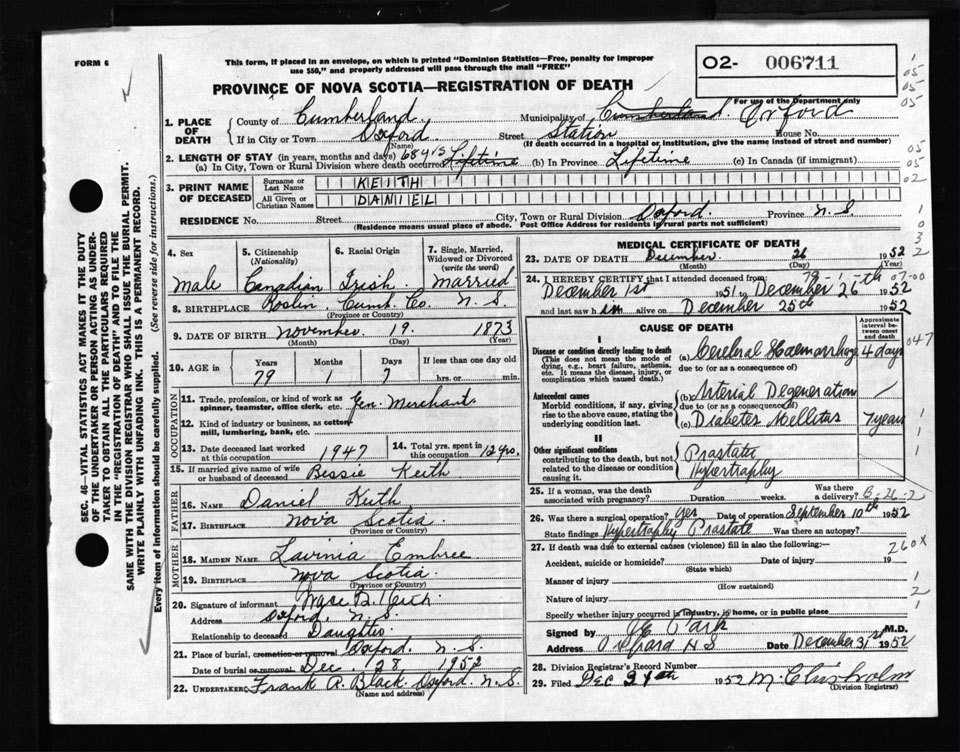 FORM 6
This form, if placed in an envelope, on which is printed "Dominion Statistics—Free, penalty for improper
use $50," and properly addressed will pass through the mail "FREE"
02- 006711
PROVINCE OF NOVA SCOTIA—REGISTRATION OF DEATH
For use of the Department only
1. PLACE OF DEATH
County of Cumberland Municipality of Cumberland Oxford
If in City or Town Oxford Street Station House No.
(Name) (If death occurred in a hospital or institution, give the name instead of street and number)
2. LENGTH OF STAY (in years, months and days)
(a) In City, Town or Rural Division where death occurred Lifetime (b) In Province Lifetime (c) In Canada (if immigrant)
3. PRINT NAME OF DECEASED
Surname or Last Name KEITH
All Given or Christian Names DANIEL
RESIDENCE No. Street City, Town or Rural Division Oxford. Province N.S.
(Residence means usual place of abode. Post Office Address for residents in rural parts not sufficient)
4. Sex Male
5. Citizenship (Nationality) Canadian
6. Racial Origin Irish
7. Single, Married, Widowed or Divorced (write the word) Married
8. BIRTHPLACE Roslin Cumb. Co. N.S.
(Province or Country)
9. DATE OF BIRTH November 19. 1873
(Month) (Day) (Year)
10. AGE in Years Months Days If less than one day old
79 1 7 hrs. or min.
OCCUPATION
11. Trade, profession, or kind of work as spinner, teamster, office clerk, etc. Gen. Merchant
12. Kind of industry or business, as cotton mill, lumbering, bank, etc.
13. Date deceased last worked at this occupation 1947
14. Total yrs. spent in this occupation 12 yrs.
15. If married give name of wife or husband of deceased Bessie Keith
FATHER
16. NAME Daniel Keith
17. BIRTHPLACE Nova Scotia.
(Province or Country)
MOTHER
18. MAIDEN NAME Lavinia Embree
19. BIRTHPLACE Nova Scotia.
(Province or Country)
20. Signature of informant B. Keith
Address Oxford, N.S.
Relationship to deceased Daughter.
21. Place of burial, cremation or removal Oxford. N.S.
Date of burial or removal Dec. 28, 1952
22. UNDERTAKER Frank R. Black Oxford. N.S.
(Name and address)
MEDICAL CERTIFICATE OF DEATH
23. DATE OF DEATH December 26 1952
(Month) (Day) (Year)
24. I HEREBY CERTIFY that I attended deceased from:
December 1st 1951 to December 26th 1952
and last saw him alive on December 25th 1952
CAUSE OF DEATH
Approximate interval between onset and death
I
Disease or condition directly leading to death
(This does not mean the mode of dying, e.g., heart failure, asthenia, etc. It means the disease, injury, or complication which caused death.)
(a) Cerebral Haemorrhage 4 days
due to (or as a consequence of)
Antecedent causes
Morbid conditions, if any, giving rise to the above cause, stating the underlying condition last.
(b) Arterial Degeneration
due to (or as a consequence of)
(c) Diabetes Mellitus 7 years
II
Other significant conditions
contributing to the death, but not related to the disease or condition causing it.
Prostate
Hypertraphy
25. If a woman, was the death associated with pregnancy? Duration weeks. Was there a delivery?
26. Was there a surgical operation? yes Date of operation September 10th 1952
State findings Hypertraphy Prostate Was there an autopsy?
27. If death was due to external causes (violence) fill in also the following:
Accident, suicide or homicide? Date of injury 19
(State which)
Manner of injury
(How sustained)
Nature of injury
Specify whether injury occurred in industry, in home, or in public place
260X
Signed by Park M.D.
Address Oxford N S Date December 31st 1952
28. Division Registrar's Record Number
29. Filed Dec 1952 M. Chisholm
(Division Registrar)
SEC. 46—VITAL STATISTICS ACT MAKES IT THE DUTY
OF THE UNDERTAKER OR PERSON ACTING AS UNDER-
TAKER TO OBTAIN ALL THE PARTICULARS REQUIRED
IN THE "REGISTRATION OF DEATH" AND TO FILE THE
SAME WITH THE DIVISION REGISTRAR WHO SHALL ISSUE THE BURIAL PERMIT.
WRITE PLAINLY WITH UNFADING INK. THIS IS A PERMANENT RECORD.
Every item of information should be carefully supplied. (See reverse side for instructions.)